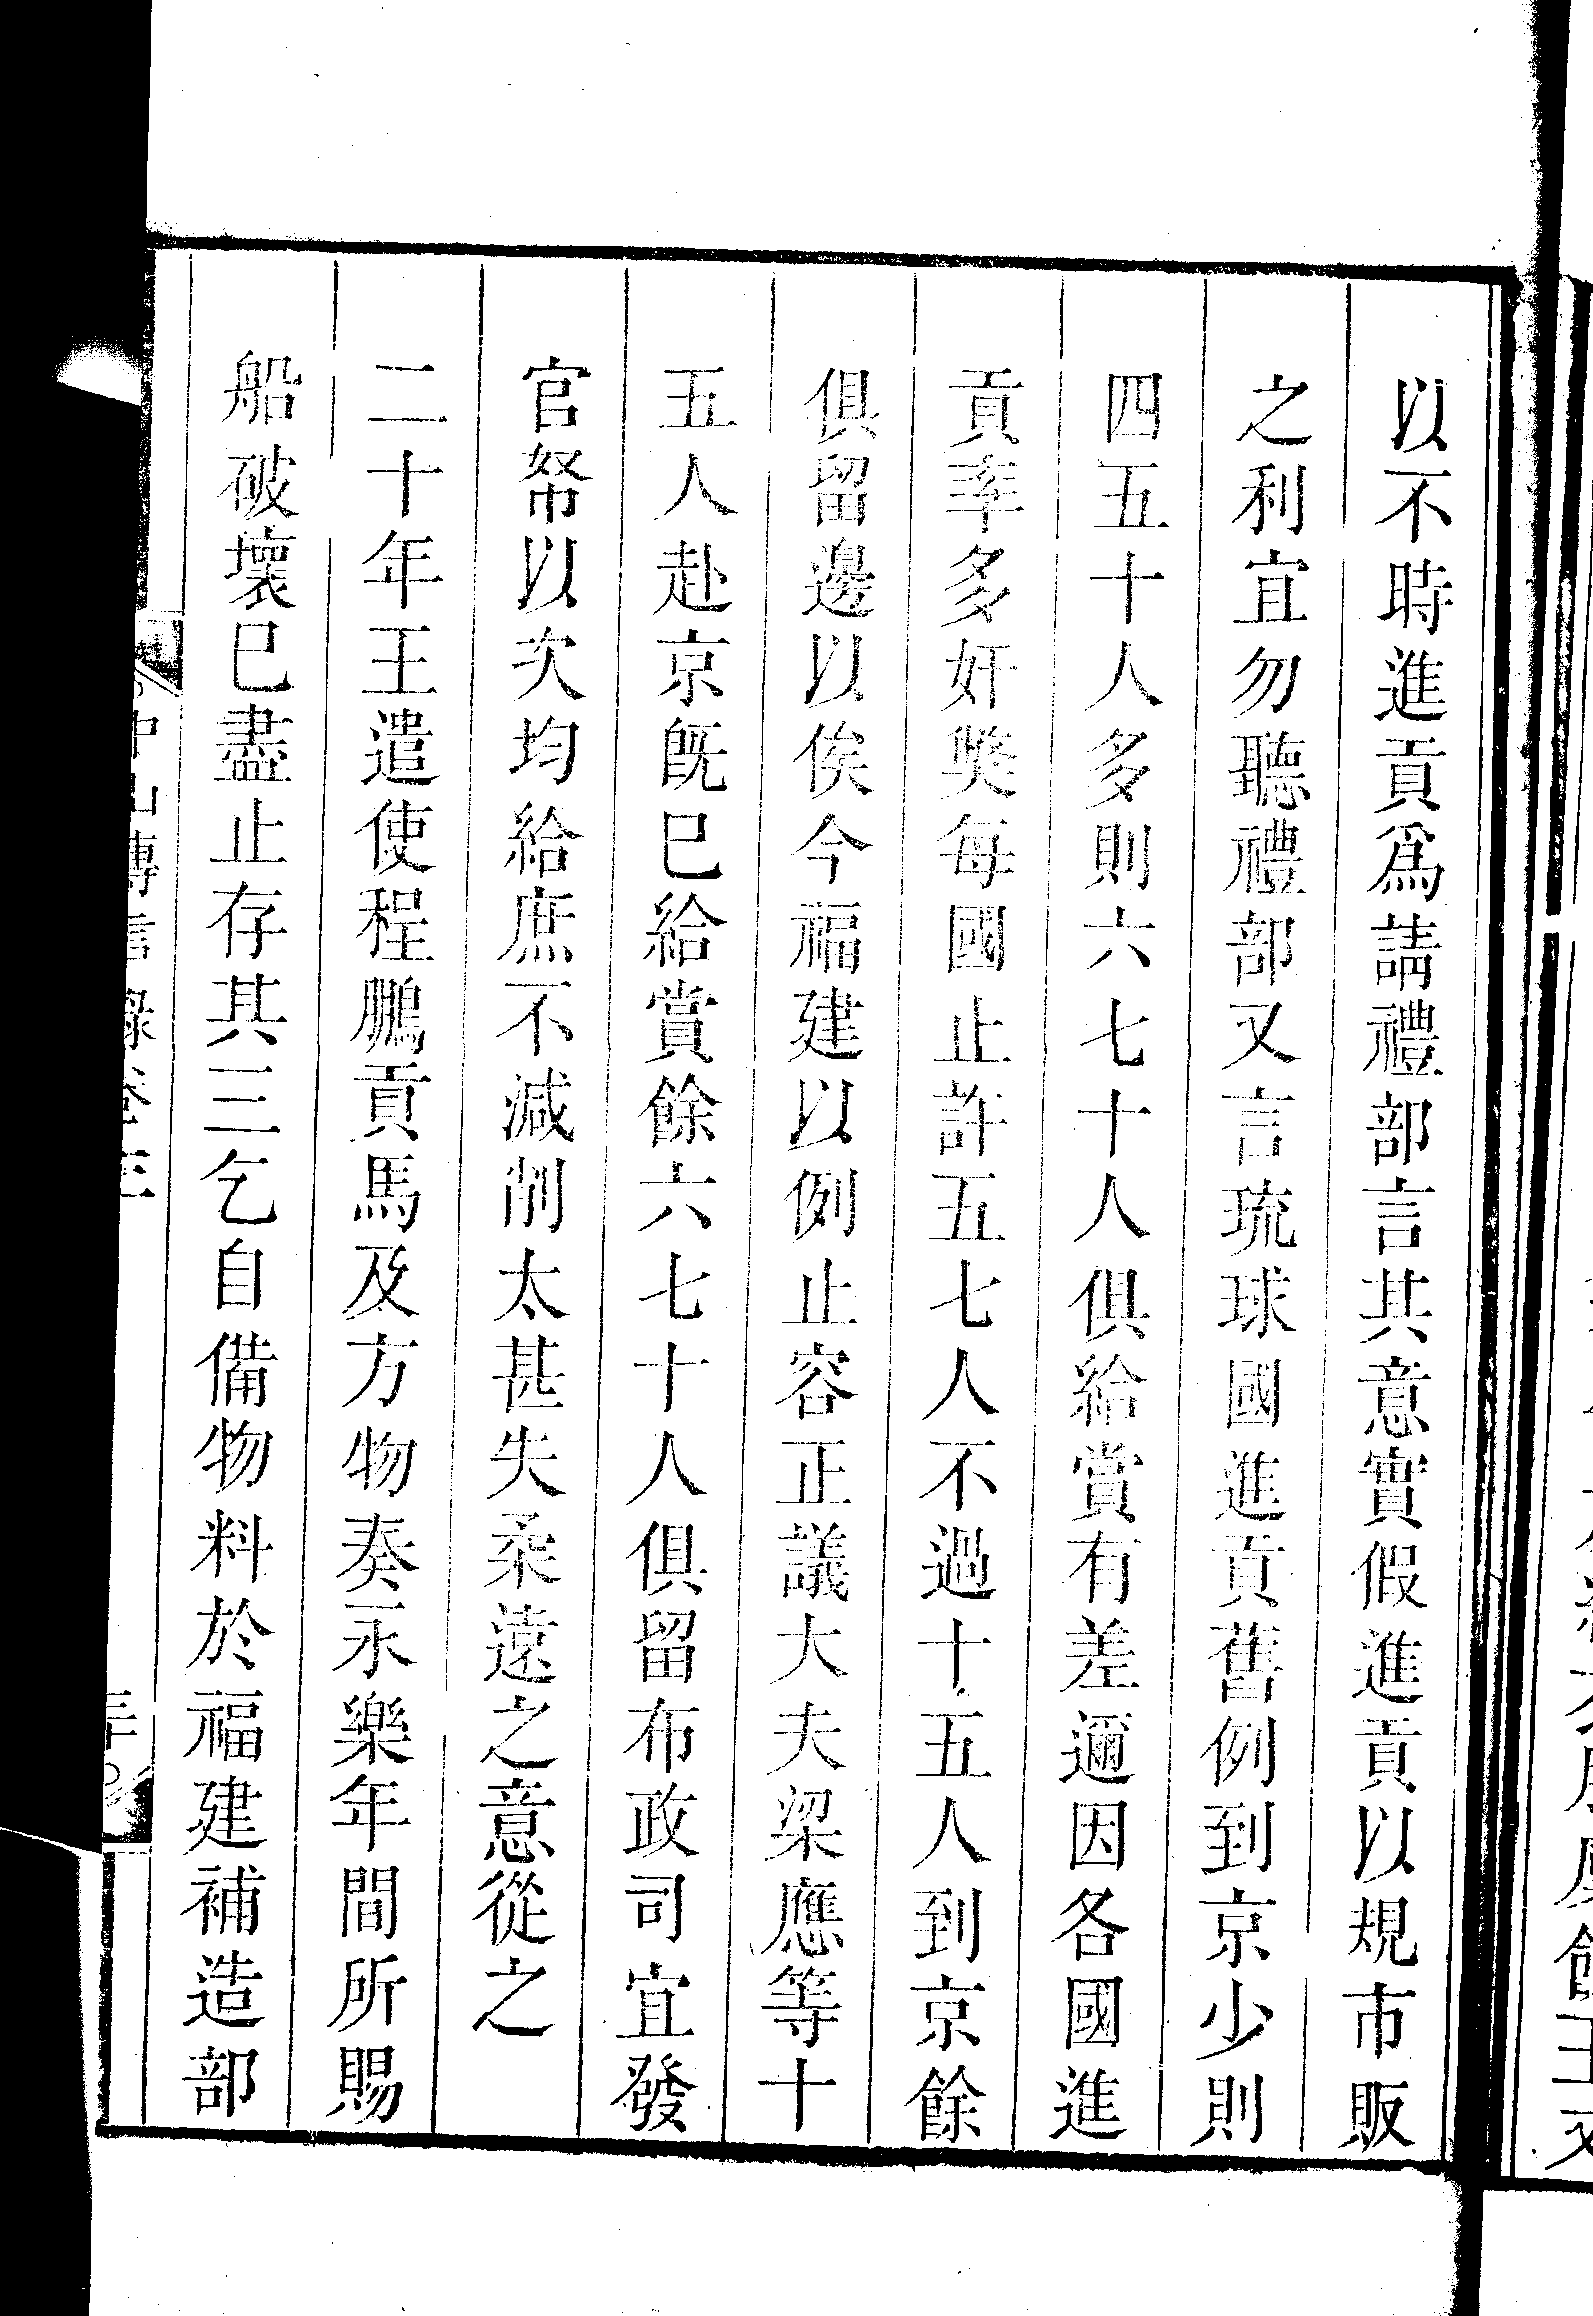 以不時進貢爲請禮部言其意實假進貢以規市販
之利宜勿聽禮部又言琉球國進貢舊例到京少則
四五十人多則六七十人俱給賞有差邇因各國進
貢率多奸獘每國止許五七人不過十五人到京餘
俱留邊以俟今福建以例止容正議大夫梁應等十
五人赴京旣巳給賞餘六七十人俱留布政司宜發
官帑以次均給庶不減削太甚失柔遠之意從之
二十年王遣使程鵬貢馬及方物奏永樂年間所賜
船破壞巳盡止存其三乞自備物料於福建補造部
中山傳信錄卷三